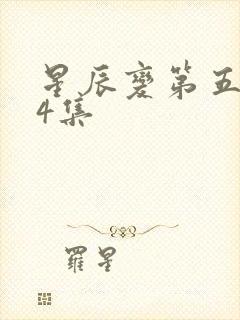 星辰变第五
4集
羅星